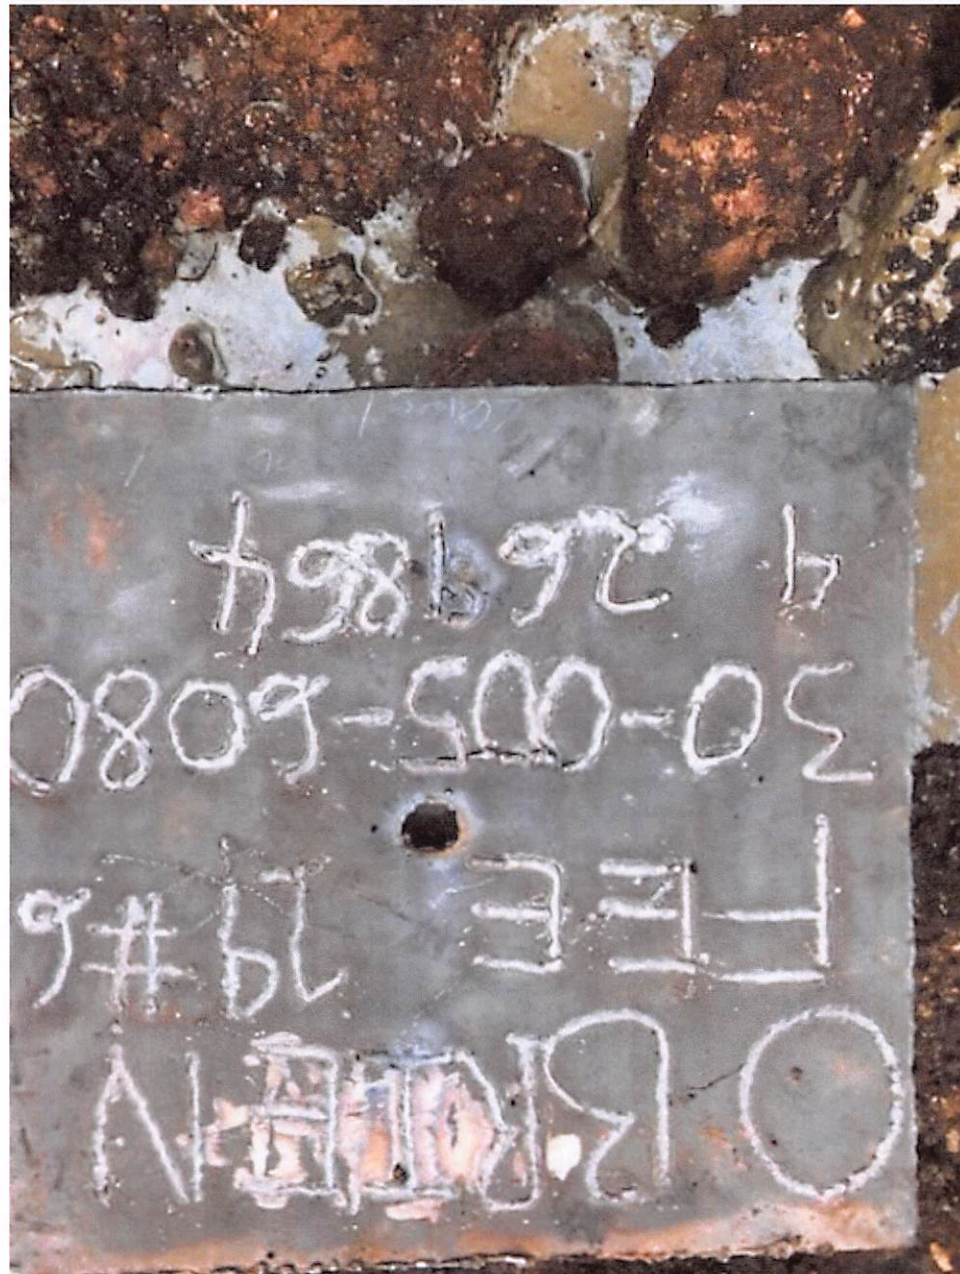 O BRIEN
FEE 19 #6
30-005-6080
4 .269864